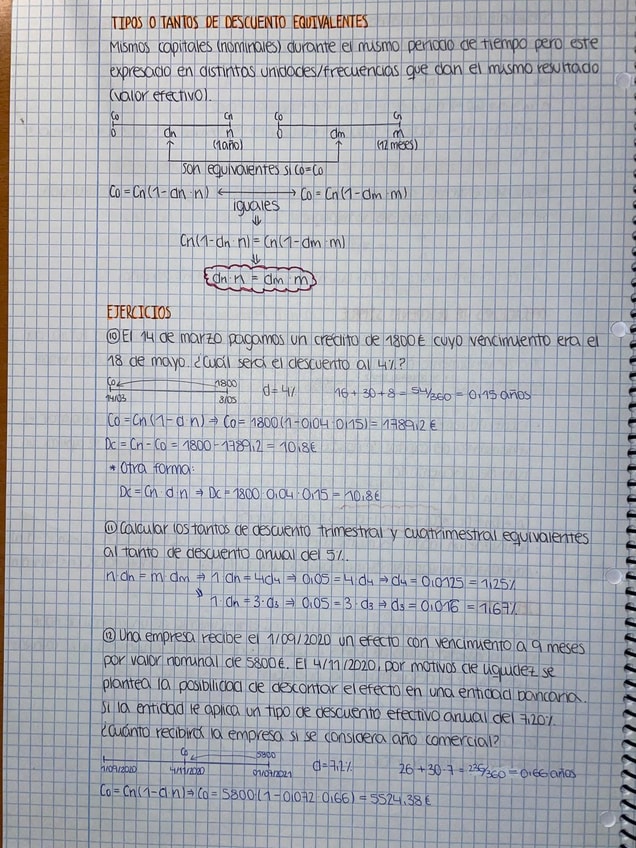 TIPOS O TANTOS DE DESCUENTO EQUIVALENTES
Mismos capitales (nominales) durante el mismo periodo de tiempo pero este
expresado en distintas unidades/frecuencias que dan el mismo resultado
(valor efectivo).
Co Cn Co Cn
0 dn n 0 dm m
(1 año) (12 meses)
son equivalentes si Co=Co
Co=Cn(1-dn·n) ⟷ Co=Cn(1-dm·m)
iguales
⇓
Cn(1-dn·n)=Cn(1-dm·m)
⇓
dn·n = dm·m
EJERCICIOS
⑩ El 14 de marzo pagamos un crédito de 1800€ cuyo vencimiento era el
18 de mayo. ¿Cuál será el descuento al 4%?
Co 1800
14/03 8/05 d=4% 16+30+8=54/360=0,15 años
Co=Cn(1-d·n) ⇒ Co=1800(1-0,04·0,15)=1789,2€
Dc=Cn-Co=1800-1789,2=10,8€
* Otra forma:
Dc=Cn·d·n ⇒ Dc=1800·0,04·0,15=10,8€
⑪ Calcular los tantos de descuento trimestral y cuatrimestral equivalentes
al tanto de descuento anual del 5%.
n·dn=m·dm ⇒ 1·dn=4·d4 ⇒ 0,05=4·d4 ⇒ d4=0,0125=1,25%
⇘ 1·dn=3·d3 ⇒ 0,05=3·d3 ⇒ d3=0,016=1,67%
⑫ Una empresa recibe el 1/09/2020 un efecto con vencimiento a 9 meses
por valor nominal de 5800€. El 4/11/2020, por motivos de liquidez se
plantea la posibilidad de descontar el efecto en una entidad bancaria.
Si la entidad le aplica un tipo de descuento efectivo anual del 7,20%
¿Cuánto recibirá la empresa si se considera año comercial?
Co 5800
1/09/2020 4/11/2020 01/07/2021 d=7,2% 26+30·7=236/360=0,66 años
Co=Cn(1-d·n)⇒Co=5800(1-0,072·0,66)=5524,38€